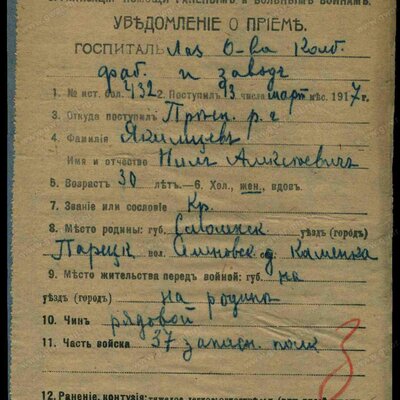 ОРГАНИЗАЦІЯ ПОМОЩИ РАНЕНЫМЪ И БОЛЬНЫМЪ ВОИНАМЪ.
УВѢДОМЛЕНІЕ О ПРІЕМѢ.
ГОСПИТАЛЬ Лаз О-ва Колб.
фаб. и завод
1. № ист. бол. 432 2. Поступил 13 числа март мѣс. 1917 г.
3. Откуда поступил р. г
4. Фамилія Якимцевъ
Имя и отчество Нилъ Алексѣевичъ
5. Возрастъ 30 лѣтъ.—6. Хол., жен., вдов.
7. Званіе или сословіе Кр.
8. Мѣсто родины: губ. Смоленск уѣзд (городъ)
вол. д. Каменка
9. Мѣсто жительства передъ войной: губ. на
уѣзд (город) на родинѣ
10. Чинъ рядовой
11. Часть войска 37 запасн. полк
12. Раненіе, контузія: